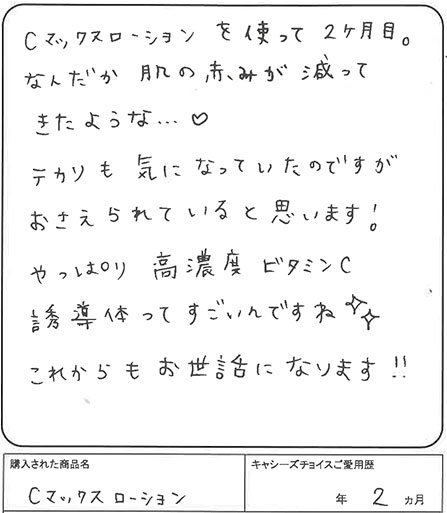 Cマックスローション を 使って 2ヶ月目。
なんだか 肌の 赤みが 減って
きたような…♡
テカリも 気に なって いたのですが
おさえられていると 思います!
やっぱり 高濃度 ビタミンC
誘導体って すごいんですね✧✧
これからも お世話に なります!!
購入された商品名
Cマックス ローション
キャシーズチョイスご愛用歴
年 2 ヵ月